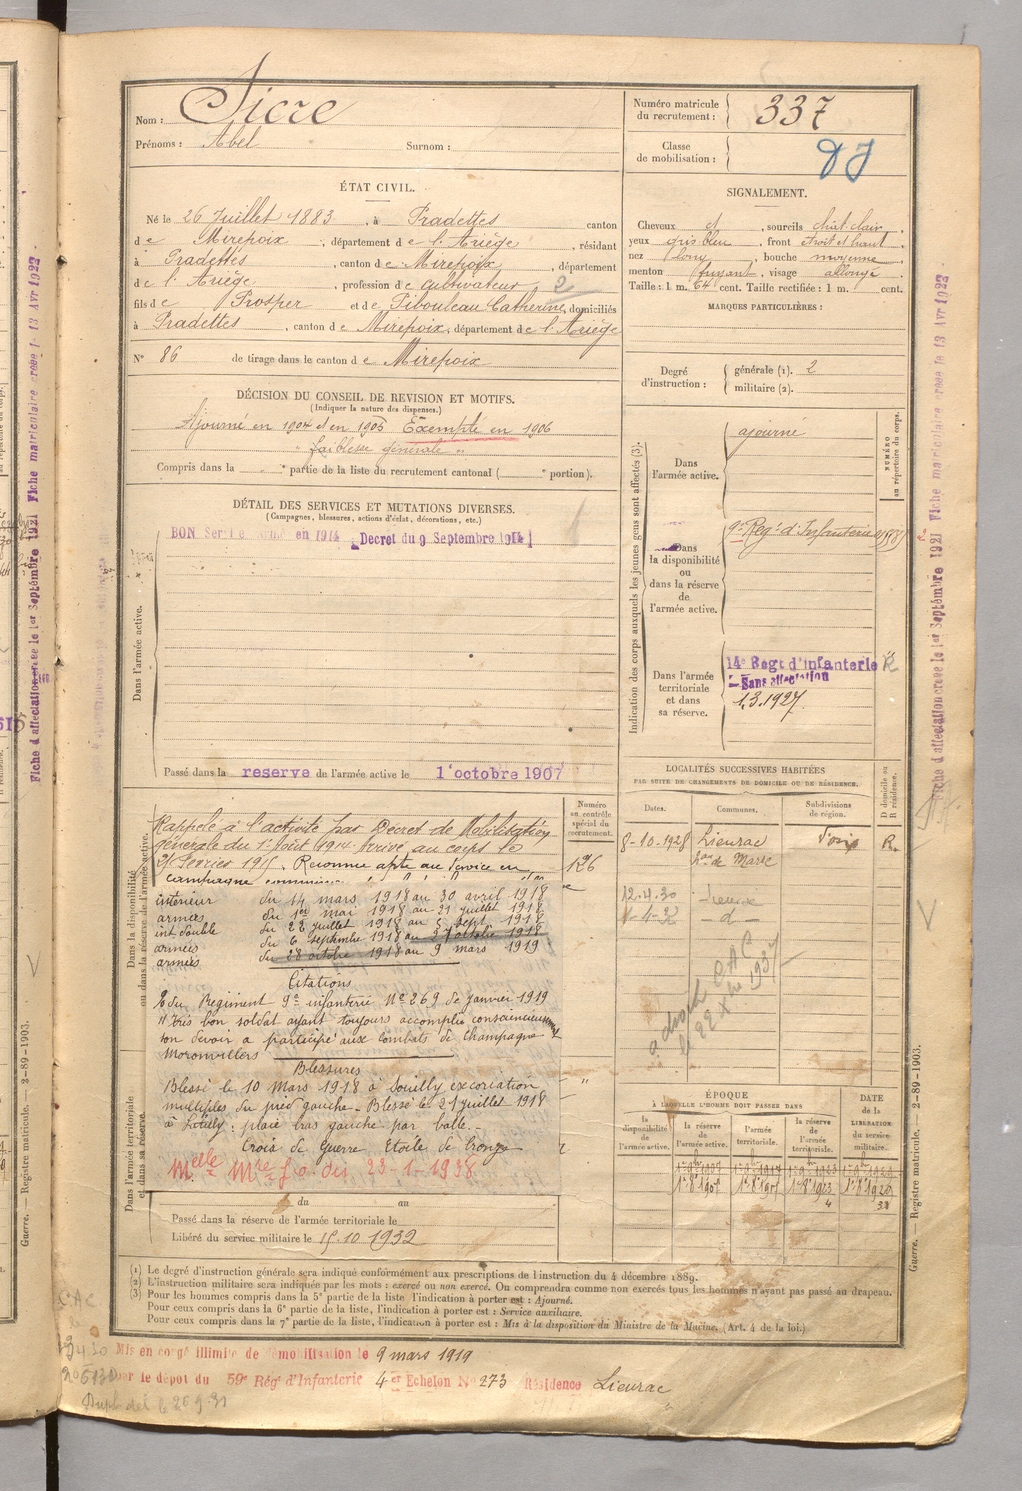 Nom : Sicre
Prénoms : Abel Surnom :
Numéro matricule du recrutement : 337
Classe de mobilisation :
ÉTAT CIVIL.
Né le 26 Juillet 1883, à Pradettes canton
de Mirepoix, département de l'Ariège, résidant
à Pradettes, canton de Mirepoix, département
de l'Ariège, profession de cultivateur 2
fils de Prosper et de Pibouleau Catherine, domiciliés
à Pradettes, canton de Mirepoix, département de l'Ariège
N° 86 de tirage dans le canton de Mirepoix
SIGNALEMENT.
Cheveux et, sourcils chat. clair
yeux gris bleu, front étroit et haut
nez long, bouche moyenne
menton fuyant, visage allongé
Taille : 1 m. 64 cent. Taille rectifiée : 1 m. cent.
MARQUES PARTICULIÈRES :
Degré d'instruction : générale (1). 2
militaire (2).
DÉCISION DU CONSEIL DE REVISION ET MOTIFS.
(Indiquer la nature des dispenses.)
Ajourné en 1904 et en 1905 Exempté en 1906
" faiblesse générale "
Compris dans la partie de la liste du recrutement cantonal ( portion).
DÉTAIL DES SERVICES ET MUTATIONS DIVERSES.
(Campagnes, blessures, actions d'éclat, décorations, etc.)
BON Service armé en 1914 Decret du 9 Septembre 1914
Dans l'armée active.
Passé dans la reserve de l'armée active le 1 octobre 1907
Indication des corps auxquels les jeunes gens sont affectés (3).
NUMÉRO au répertoire du corps.
Dans l'armée active. ajourné
Dans la disponibilité ou dans la réserve de l'armée active. 9e Reg. d'Infanterie
Dans l'armée territoriale et dans sa réserve. 14e Regt d'infanterie
Sans affectation
1.3.1927
LOCALITÉS SUCCESSIVES HABITÉES
PAR SUITE DE CHANGEMENTS DE DOMICILE OU DE RÉSIDENCE.
Dates. Communes. Subdivisions de région. D domicile ou R résidence.
8-10-1928 Lieurac R.
12.4.30
- d -
Dans la disponibilité ou dans la réserve de l'armée active.
Numéro au contrôle spécial du recrutement.
126
Rappelé à l'activité par Décret de Mobilisation
générale du 1er Août 1914. Arrivé au corps le
Février 1915. Reconnu apte au service en
campagne
intérieur du 14 mars 1918 au 30 avril 1918
armées du 1er mai 1918 au 21 juillet 1918
int. double du 22 juillet 1918 au 5 sept. 1918
armées du 6 septembre 1918 au 27 octobre 1918
armées du 28 octobre 1918 au 9 mars 1919
Citations
du Regiment 9e infanterie No 269 de janvier 1919
"Très bon soldat ayant toujours accompli consciencieusement
son devoir a participé aux combats de Champagne et
Moronvillers
Blessures
Blessé le 10 Mars 1918 à Souilly excoriation
multiples du pied gauche - Blessé le 21 juillet 1918
à : plaie bras gauche par balle. -
Croix de Guerre Etoile de Bronze
23-1-1938
Dans l'armée territoriale et dans sa réserve.
du au
Passé dans la réserve de l'armée territoriale le
Libéré du service militaire le 15.10.1932
ÉPOQUE
À LAQUELLE L'HOMME DOIT PASSER DANS
la disponibilité de l'armée active. la réserve de l'armée active. l'armée territoriale. la réserve de l'armée territoriale. DATE de la LIBÉRATION du service militaire.
(1) Le degré d'instruction générale sera indiqué conformément aux prescriptions de l'instruction du 4 décembre 1889.
(2) L'instruction militaire sera indiquée par les mots : exercé ou non exercé. On comprendra comme non exercés tous les hommes n'ayant pas passé au drapeau.
(3) Pour les hommes compris dans la 5e partie de la liste l'indication à porter est : Ajourné.
Pour ceux compris dans la 6e partie de la liste, l'indication à porter est : Service auxiliaire.
Pour ceux compris dans la 7e partie de la liste, l'indication à porter est : Mis à la disposition du Ministre de la Marine. (Art. 4 de la loi.)
Mis en congé illimité de démobilisation le 9 mars 1919
par le dépot du 59e Rég d'Infanterie 4er Echelon No 273 Résidence Lieurac
Guerre. — Registre matricule. — 2-89-1903.
Guerre. — Registre matricule. — 2-89-1903.
Fiche d'affectation creee le 1er Septembre 1921 Fiche matriculaire creee le 13 Avr 1922
Fiche d'affectation creee le 1er Septembre 1921 Fiche matriculaire creee le 13 Avr 1922